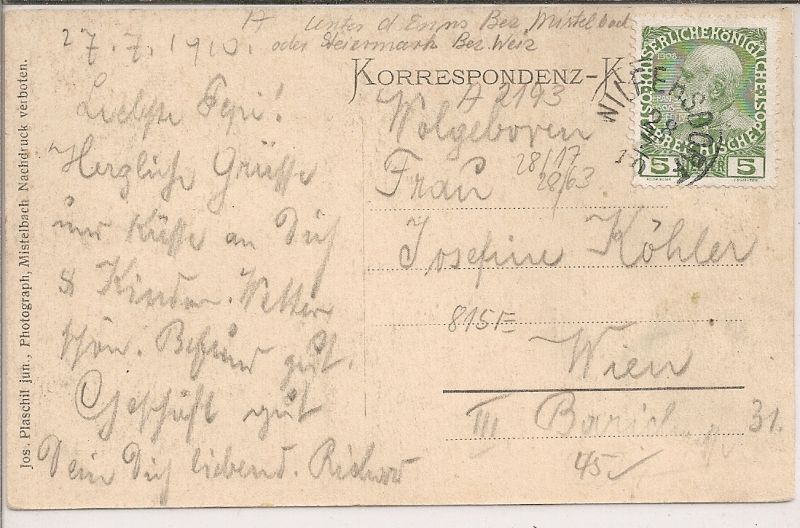 A Unter d Enns Bez. Mistelbach
oder Steiermark Bez Weiz
27.7.1910.
KORRESPONDENZ-K
Liebste Pepi!
Herzliche Grüsse
und Küsse an Dich
& Kinder. Wetter
schön. Befund gut.
Geschäft gut
Dein Dich liebend. Richard
A 2193
Wolgeboren
28/17
28/63
Frau
Josefine Köhler
815E
Wien
III 31.
45
Jos. Plaschil jun., Photograph, Mistelbach Nachdruck verboten.
KAISERLICHEKÖNIGLICHE
1908
ÖSTERREICHISCHE
5 5
WILFERSDORF
28
10